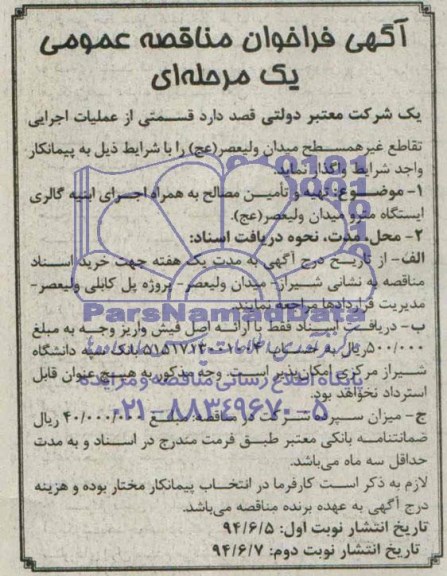 آگهی فراخوان مناقصه عمومی
یک مرحله‌ای
یک شرکت معتبر دولتی قصد دارد قسمتی از عملیات اجرایی
تقاطع غیرهمسطح میدان ولیعصر(عج) را با شرایط ذیل به پیمانکار
واجد شرایط واگذار نماید.
۱- موضوع: تهیه و تأمین مصالح به همراه اجرای ابنیه گالری
ایستگاه مترو میدان ولیعصر(عج).
۲- محل، مدت، نحوه دریافت اسناد:
الف- از تاریخ درج آگهی به مدت یک هفته جهت خرید اسناد
مناقصه به نشانی شیراز- میدان ولیعصر- پروژه پل کابلی ولیعصر-
مدیریت قراردادها مراجعه نمایند.
ParsNamadData
ب- دریافت اسناد فقط با ارائه اصل فیش واریز وجه به مبلغ
۵۰۰/۰۰۰ ریال به حساب بانک شعبه دانشگاه
شیراز مرکزی امکان‌پذیر است. وجه مذکور به هیچ عنوان قابل
استرداد نخواهد بود.
پایگاه اطلاع رسانی مناقصه و مزایده
۰۲۱-۸۸۳۴۹۶۷۰-۵
ج- میزان سپرده شرکت در مناقصه: مبلغ ۴۰/۰۰۰/۰۰۰ ریال
ضمانتنامه بانکی معتبر طبق فرمت مندرج در اسناد و به مدت
حداقل سه ماه می‌باشد.
لازم به ذکر است کارفرما در انتخاب پیمانکار مختار بوده و هزینه
درج آگهی به عهده برنده مناقصه می‌باشد.
تاریخ انتشار نوبت اول: ۹۴/۶/۵
تاریخ انتشار نوبت دوم: ۹۴/۶/۷